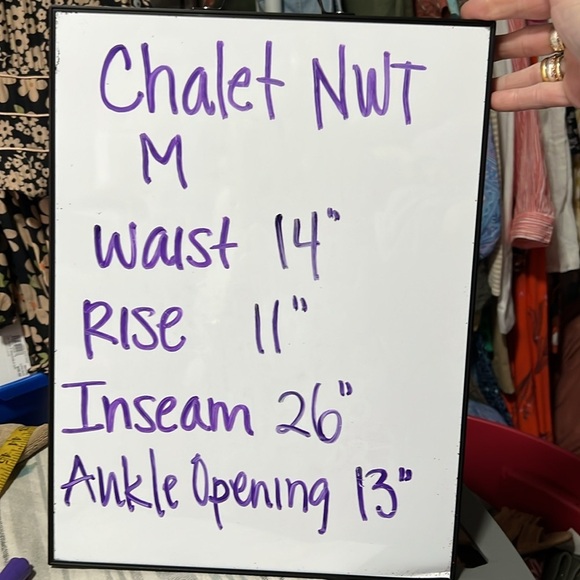 Chalet NWT
M
Waist 14"
Rise 11"
Inseam 26"
Ankle Opening 13"